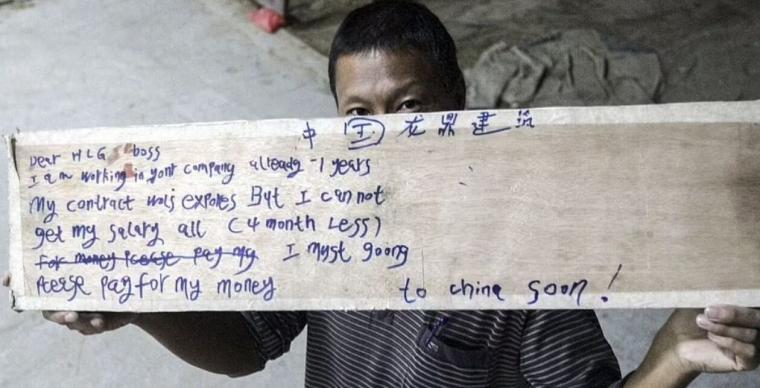 中国龙鼎建筑
Dear HLG boss
I am working in yont company already -1 years
My contract wois expores But I can not
get my salary all (4 month Less)
for money Pcease pay my I myst going
Pcease pay for my money to china soon!